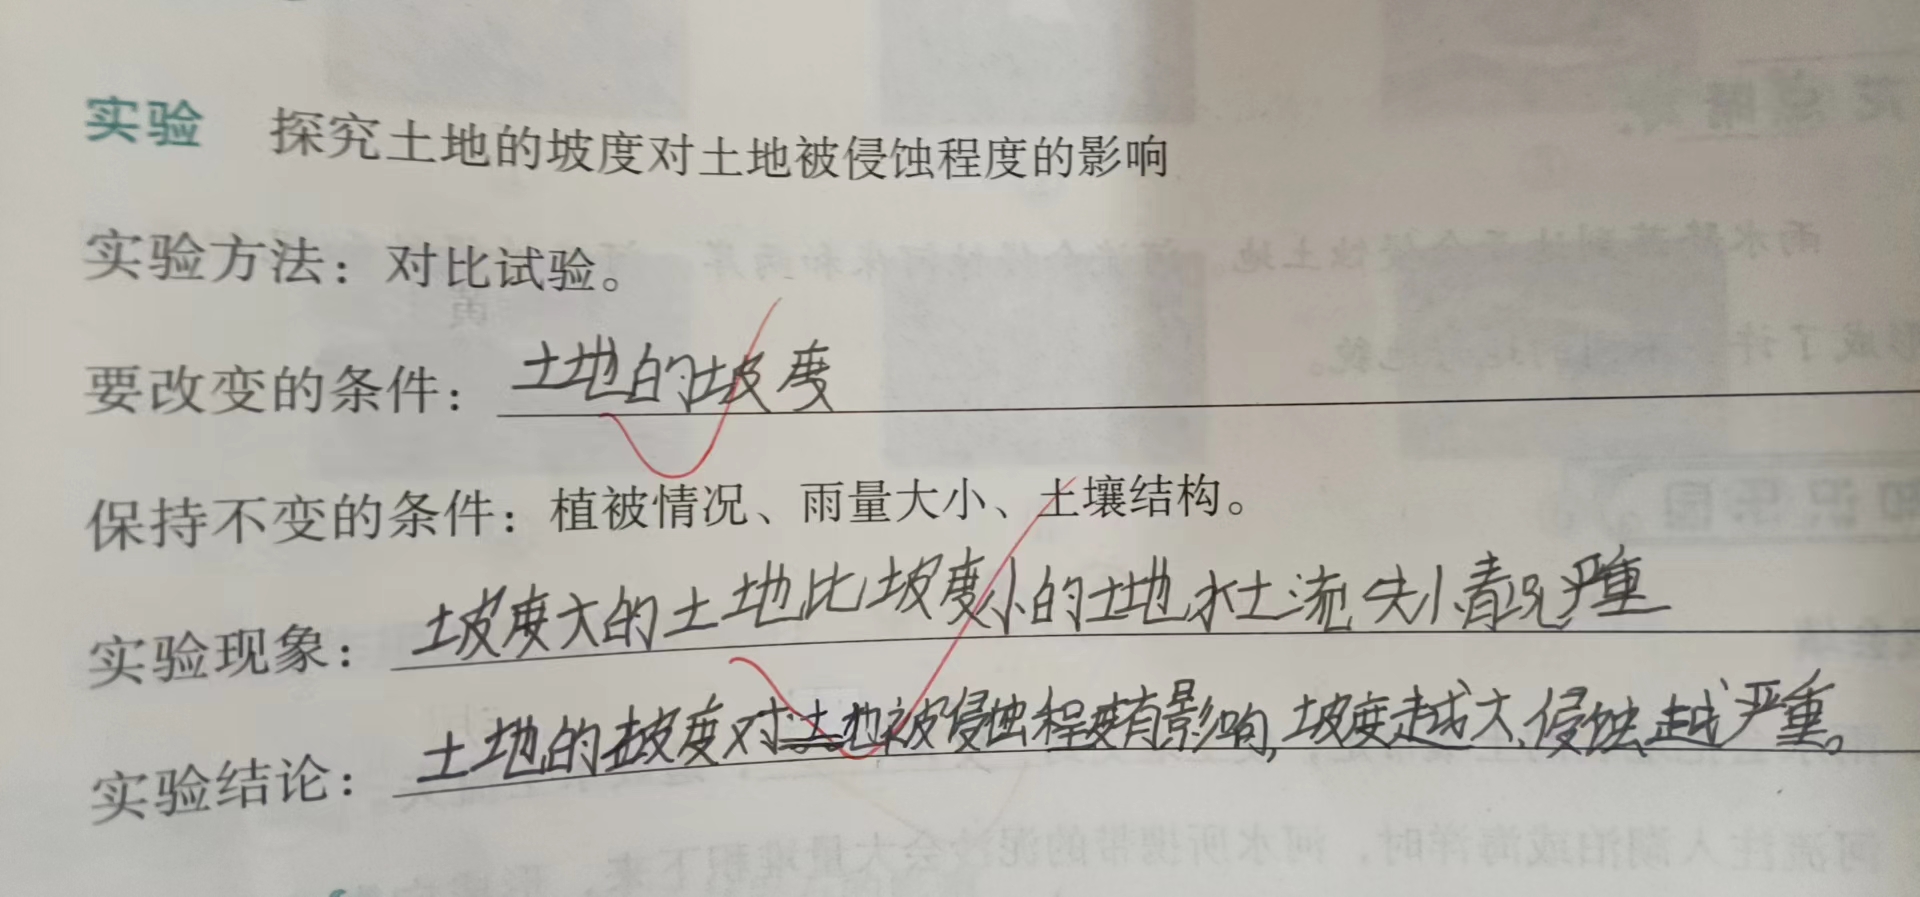 实验 探究土地的坡度对土地被侵蚀程度的影响
实验方法：对比试验。
要改变的条件：土地的坡度
保持不变的条件：植被情况、雨量大小、土壤结构。
实验现象：坡度大的土地比坡度小的土地水土流失情况严重
实验结论：土地的坡度对土地被侵蚀程度有影响,坡度越大,侵蚀越严重。